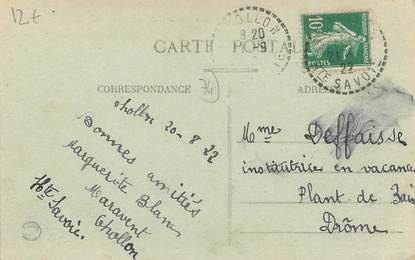 12€
CARTE POSTALE
CORRESPONDANCE
ADRES
74
THOLLON
8 20
-9
10c
POSTES
22
HTE SAVOIE
Thollon 20-8 22
Bonnes amitiés
Marguerite Blanc
Maravent
Thollon
Hte Savoie.
Mme Deffaisse
institutrice en vacance
Plant de
Drôme